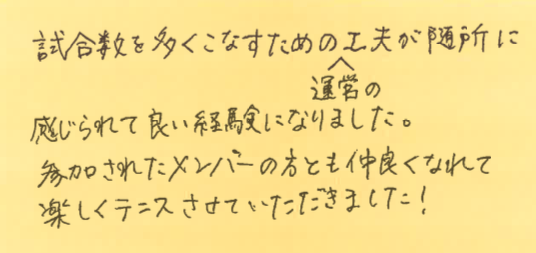 試合数を多くこなすための工夫が随所に
運営の
感じられて良い経験になりました。
参加されたメンバーの方とも仲良くなれて
楽しくテニスさせていただきました!